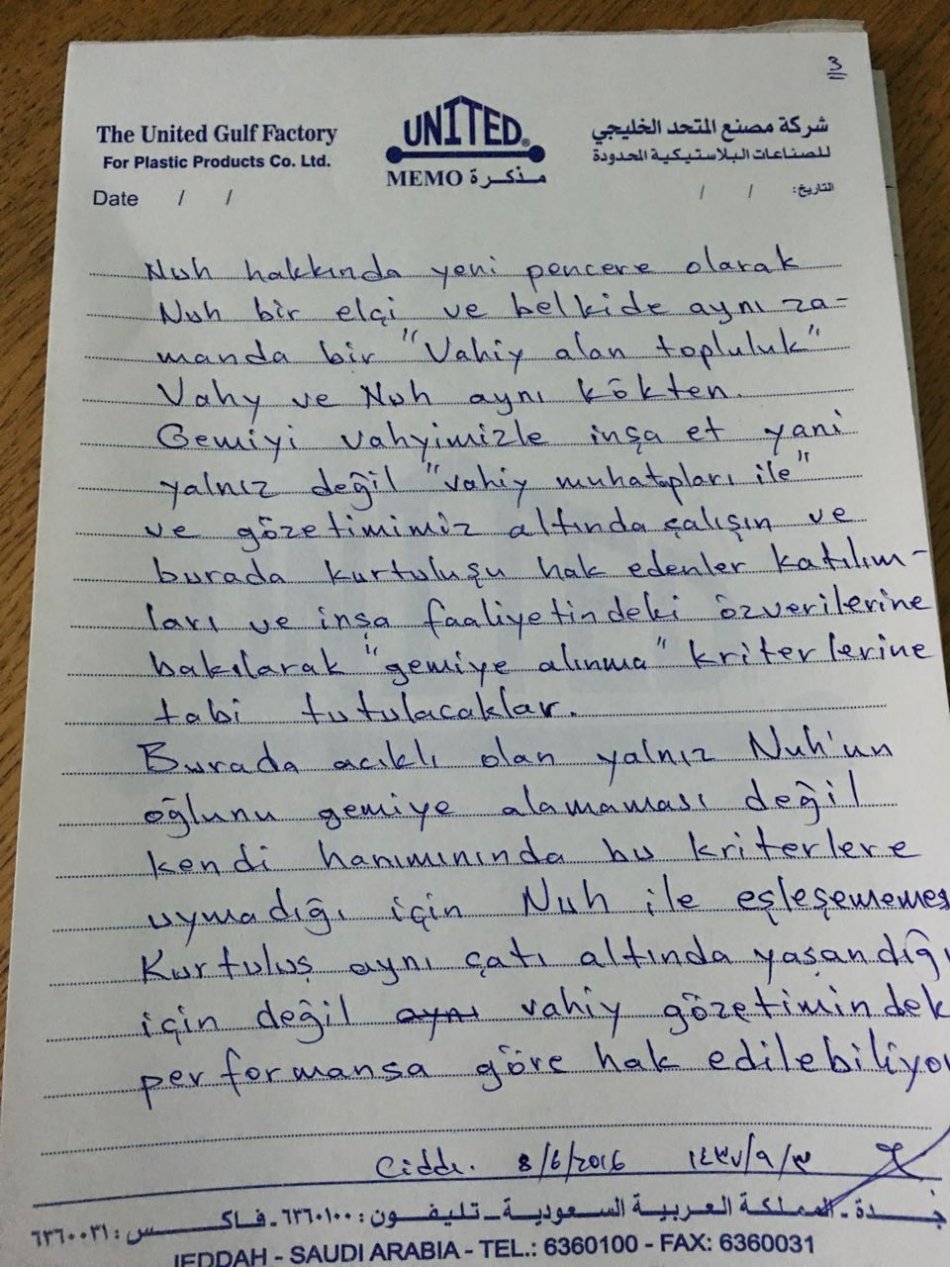 3
The United Gulf Factory
For Plastic Products Co. Ltd.
UNITED®
MEMO مذكرة
شركة مصنع المتحد الخليجي
للصناعات البلاستيكية المحدودة
Date / /
التاريخ: / /
Nuh hakkında yeni pencere olarak
Nuh bir elçi ve belkide aynı za-
manda bir "Vahiy alan topluluk"
Vahy ve Nuh aynı kökten.
Gemiyi vahyimizle inşa et yani
yalnız değil "vahiy muhatapları ile"
ve gözetimimiz altında çalışın ve
burada kurtuluşu hak edenler katılım-
ları ve inşa faaliyetindeki özverilerine
bakılarak "gemiye alınma" kriterlerine
tabi tutulacaklar.
Burada acıklı olan yalnız Nuh'un
oğlunu gemiye alamaması değil
kendi hanımınında bu kriterlere
uymadığı için Nuh ile eşleşememes
Kurtuluş aynı çatı altında yaşandığı
için değil aynı vahiy gözetimindek
performansa göre hak edilebiliyo
Cidde. 8/6/2016 ١٤٣٧/٩/٣
جـدة - المملكة العربية السعودية - تليفون: ٦٣٦٠١٠٠ - فاكس: ٦٣٦٠٠٣١
JEDDAH - SAUDI ARABIA - TEL.: 6360100 - FAX: 6360031